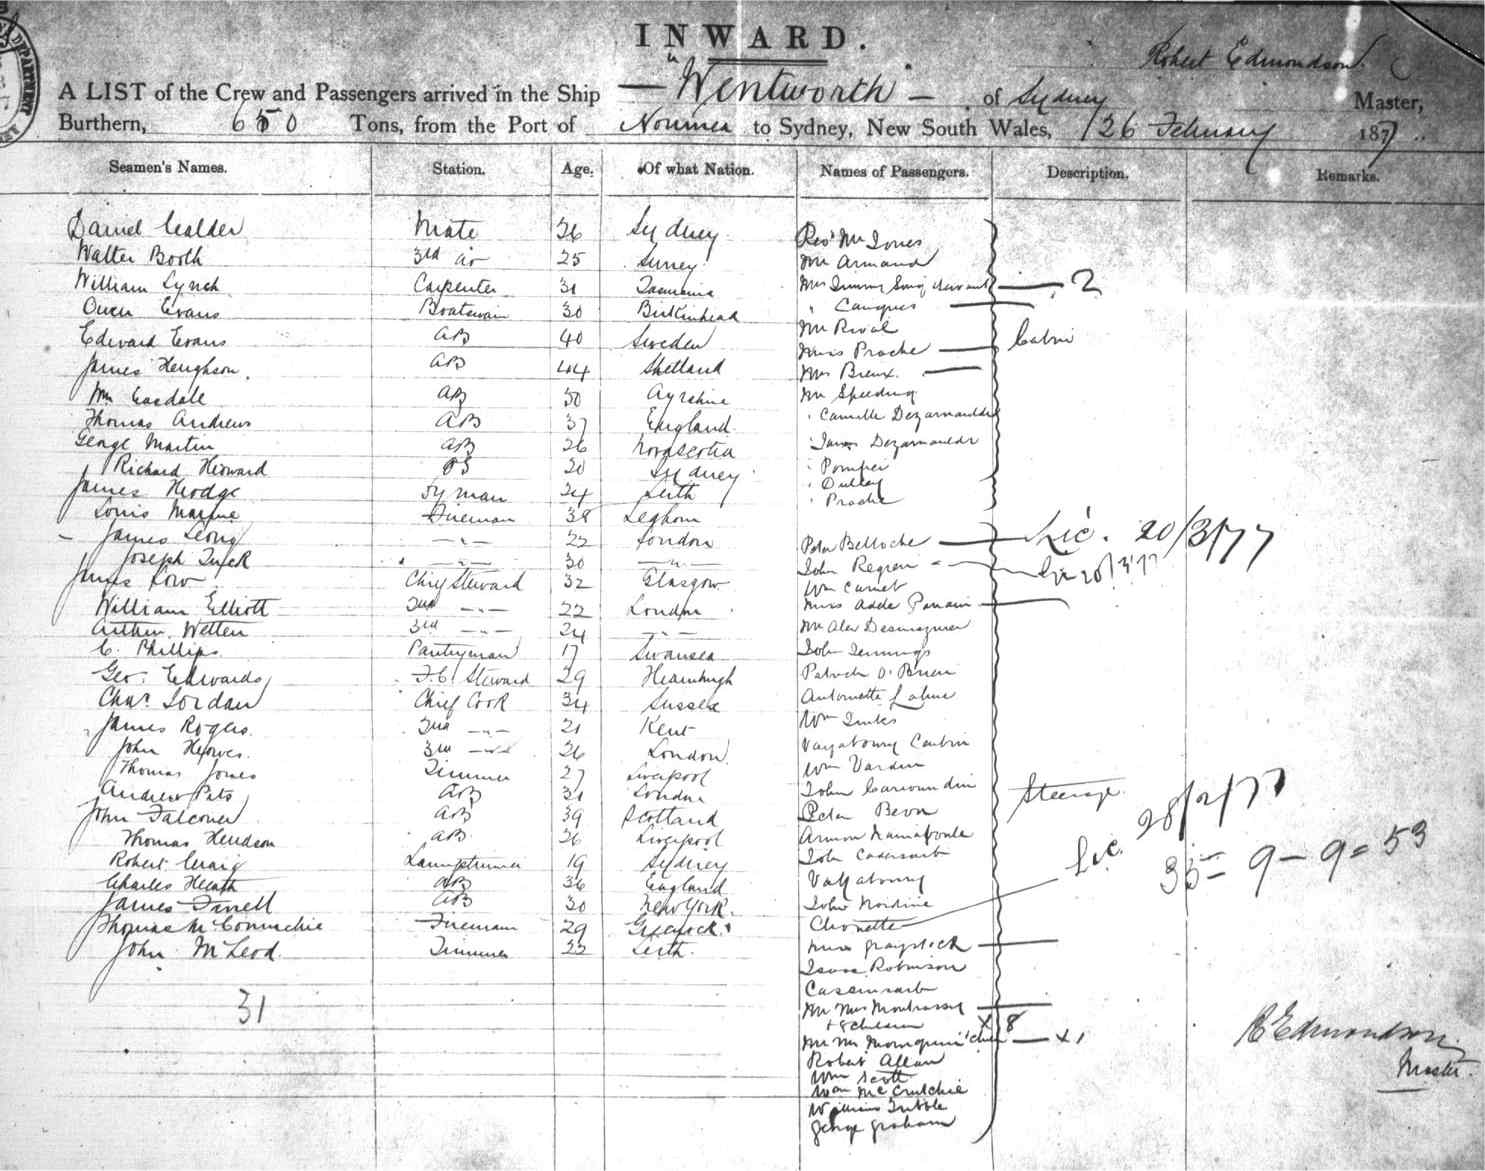 INWARD.
Robert Edmondson
A LIST of the Crew and Passengers arrived in the Ship — Wentworth — of Sydney Master,
Burthern, 650 Tons, from the Port of Noumea to Sydney, New South Wales, 26 February 1877
Seamen's Names. Station. Age. Of what Nation. Names of Passengers. Description. Remarks.
Daniel Calder Mate 36 Sydney
Walter Booth 3rd do 25 Surrey
William Lynch Carpenter 31 Tasmania
Owen Evans Boatswain 30 Birkinhead
Edward Evans AB 40 Sweden
James Heughson AB 44 Shetland
Wm Easdale AB 30 Ayrshire
Thomas Andrews AB 37 England
George Martin AB 26 Novascotia
Richard Herward OS 20 Sydney
James Hodge Dy man 24 Leith
Louis Fireman 38 Leghorn
James Leong —"— 22 London
Joseph Tuck —"— 30 —"—
James Low Chief Steward 32 Glasgow
William Elliott 2nd —"— 22 London
Arthur Wetten 3rd —"— 24 —"—
C. Phillips Pantryman 17 Swansea
Geo. Edwards F.C. Steward 29
Chas. Jordan Chief Cook 34 Sussex
James Rogers 2nd —"— 21 Kent
John Howes 3rd —"— 26 London
Thomas Jones Trimmer 27 Liverpool
Andrew Pats AB 31 London
John Falconer AB 39 Scotland
Thomas Hendson AB 26 Liverpool
Robert Craig Lamptrimmer 19 Sydney
Charles Heath AB 36 England
James Farrell AB 30 New York.
Thomas McConnachie Fireman 29 Greenock
John McLeod Trimmer 22 Leith
31
Revd Mr Jones
Mr Armand
Mrs servant — 2
" Canques
Mr Rival
Miss Proche Cabin
Mrs Breux
Mr Speeding
" Camille Dezarnaulds
" Dezarnaulds
" Pomper
"
" Proche
Peter Belloche — Lic. 20/3/77
John Regren — Lic 20/3/77
Wm Carnet
Miss Adele
Mr Alex
John Jennings
Patrick O'Brien
Antoinette
Wm
Vagabourg
Wm Varden
John
Peter Bevon Steerage
Armon
John
Vagabourg
John
Chonette — Lic. 28/2/77
35 = 9 - 9 = 53
Miss Graystock
Robinson
Mr Mrs
+ 8 children x 8
Mr Mrs x 1
Robert Allan
Wm Scott
Wm McCrutchie
William Tribble
George Graham
R Edmondson
Master.